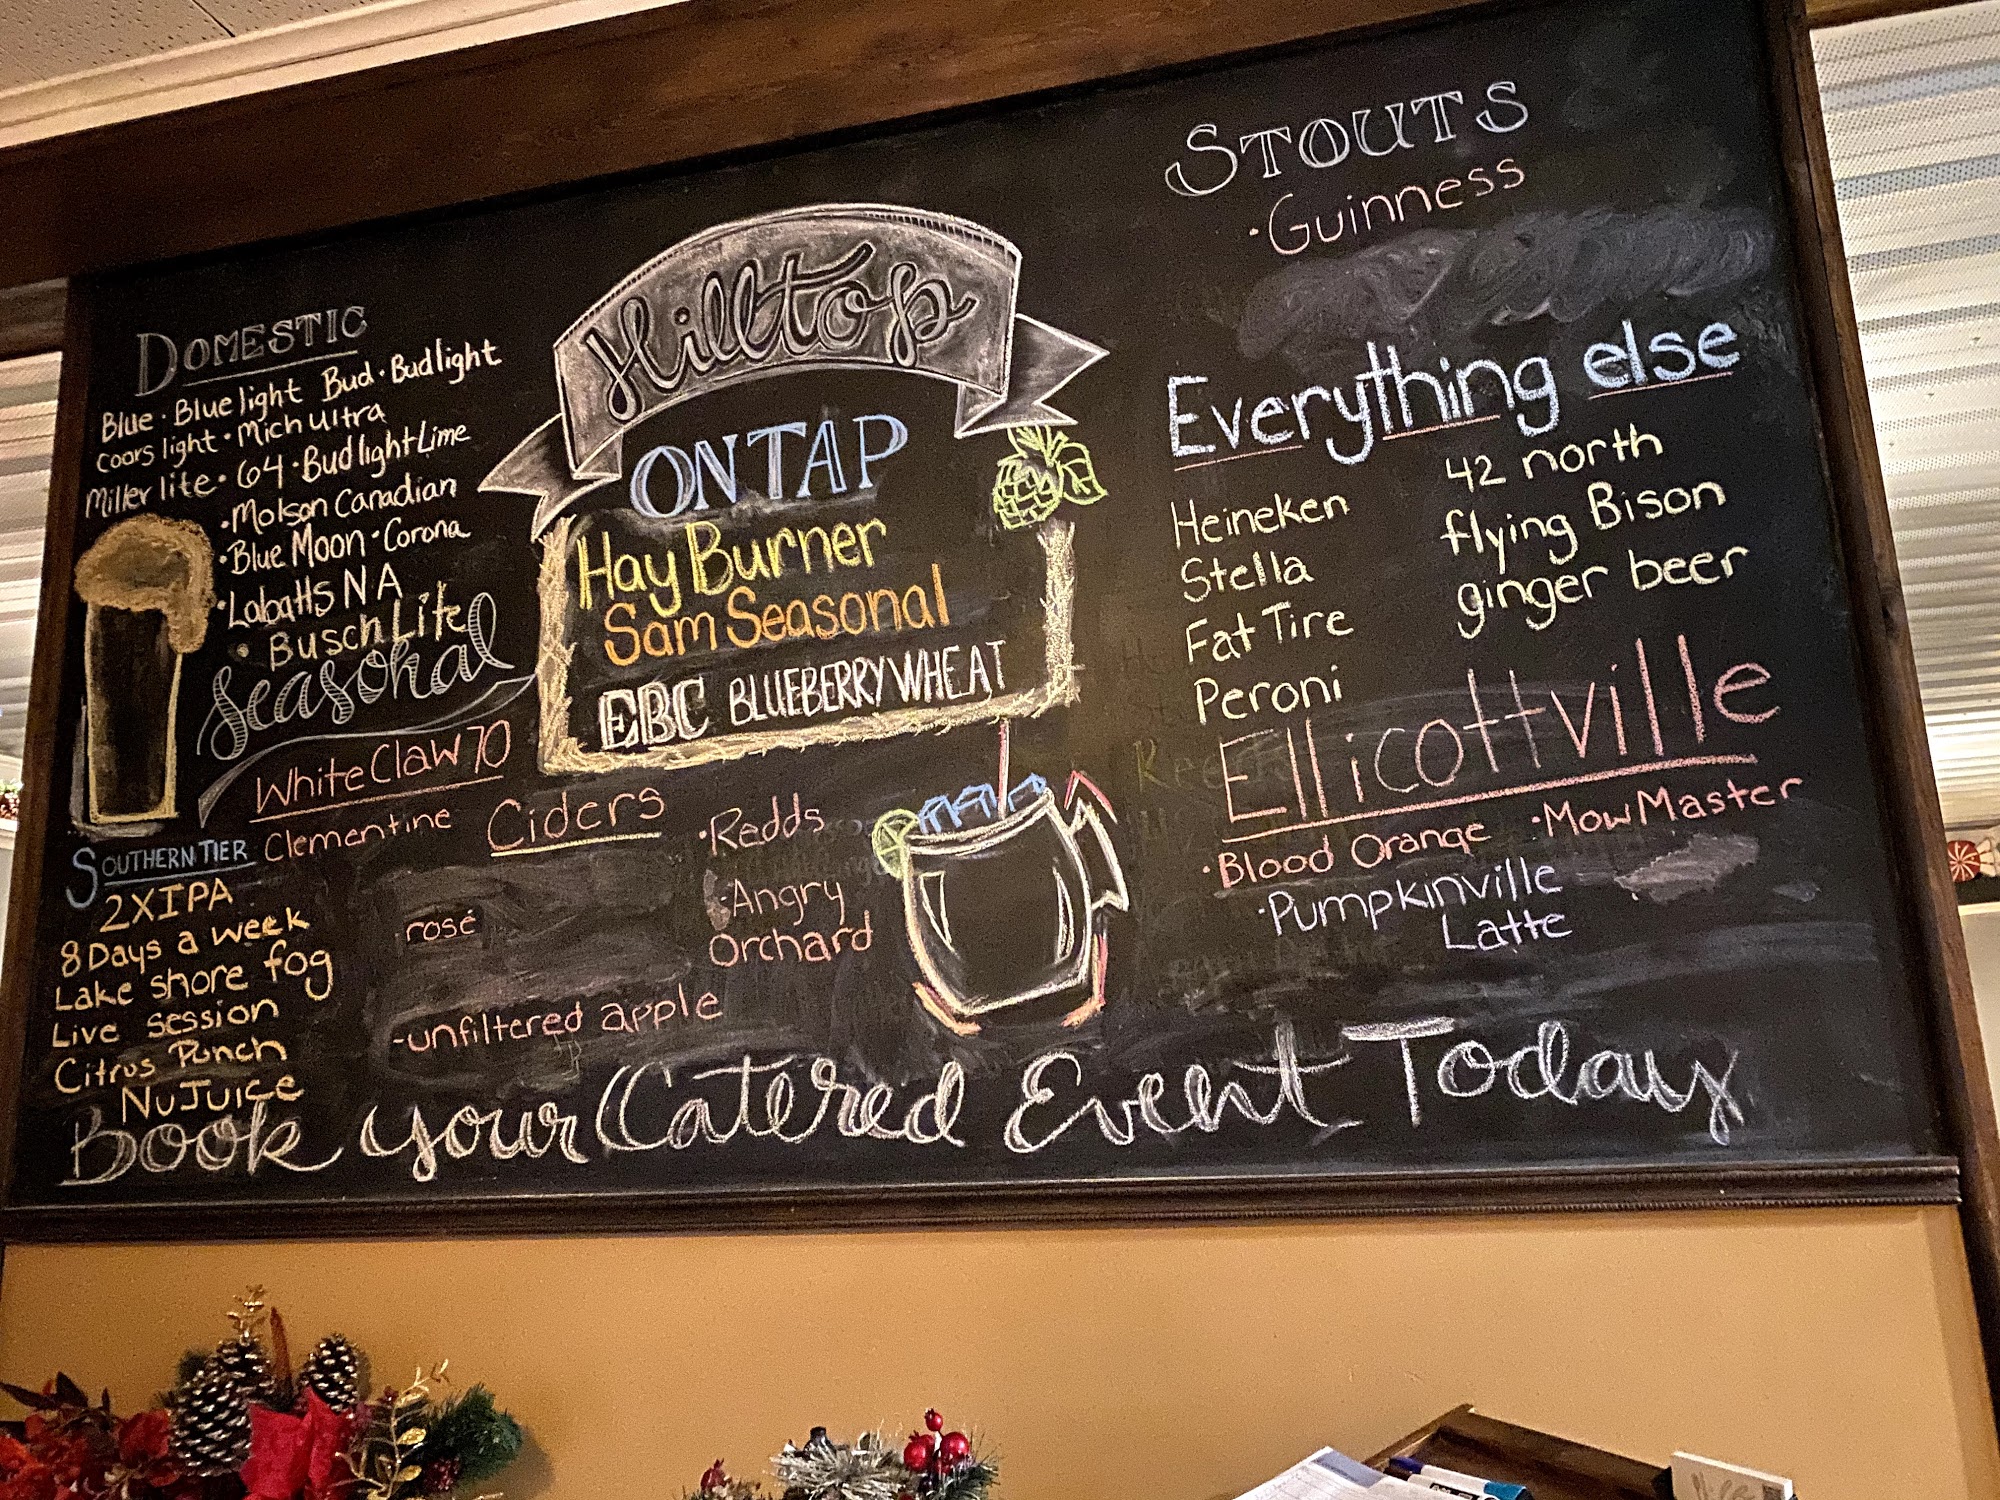 Hilltop
ON TAP
Hay Burner
Sam Seasonal
EBC BLUEBERRY WHEAT
DOMESTIC
Blue · Blue light Bud · Bud light
Coors light · Mich ultra
Miller lite · 64 · Bud light Lime
· Molson Canadian
· Blue Moon · Corona
· Labatts NA
· Busch Lite
Seasonal
White Claw 70
Clementine
SOUTHERN TIER
2XIPA
8 Days a week
Lake shore fog
Live session
Citrus Punch
NuJuice
Ciders
· Redds
rosé
· Angry
Orchard
-unfiltered apple
STOUTS
· Guinness
Everything else
Heineken
Stella
Fat Tire
Peroni
42 north
flying Bison
ginger beer
Ellicottville
· Blood Orange · Mow Master
· Pumpkinville
Latte
Book your Catered Event Today